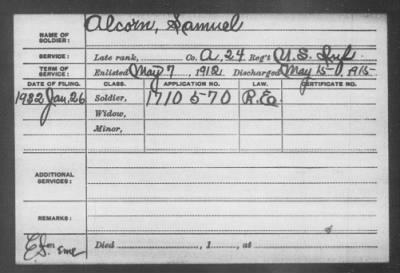 NAME OF SOLDIER: Alcorn, Samuel
SERVICE: Late rank, Co. A, 24 Reg't U.S. Inf
TERM OF SERVICE: Enlisted May 7, 1912 Discharged May 15, 1915
DATE OF FILING. CLASS. APPLICATION NO. LAW. CERTIFICATE NO.
1932 Jan. 26 Soldier, 1710570 R.Ed.
Widow,
Minor,
ADDITIONAL SERVICES:
REMARKS:
Died , 1 , at